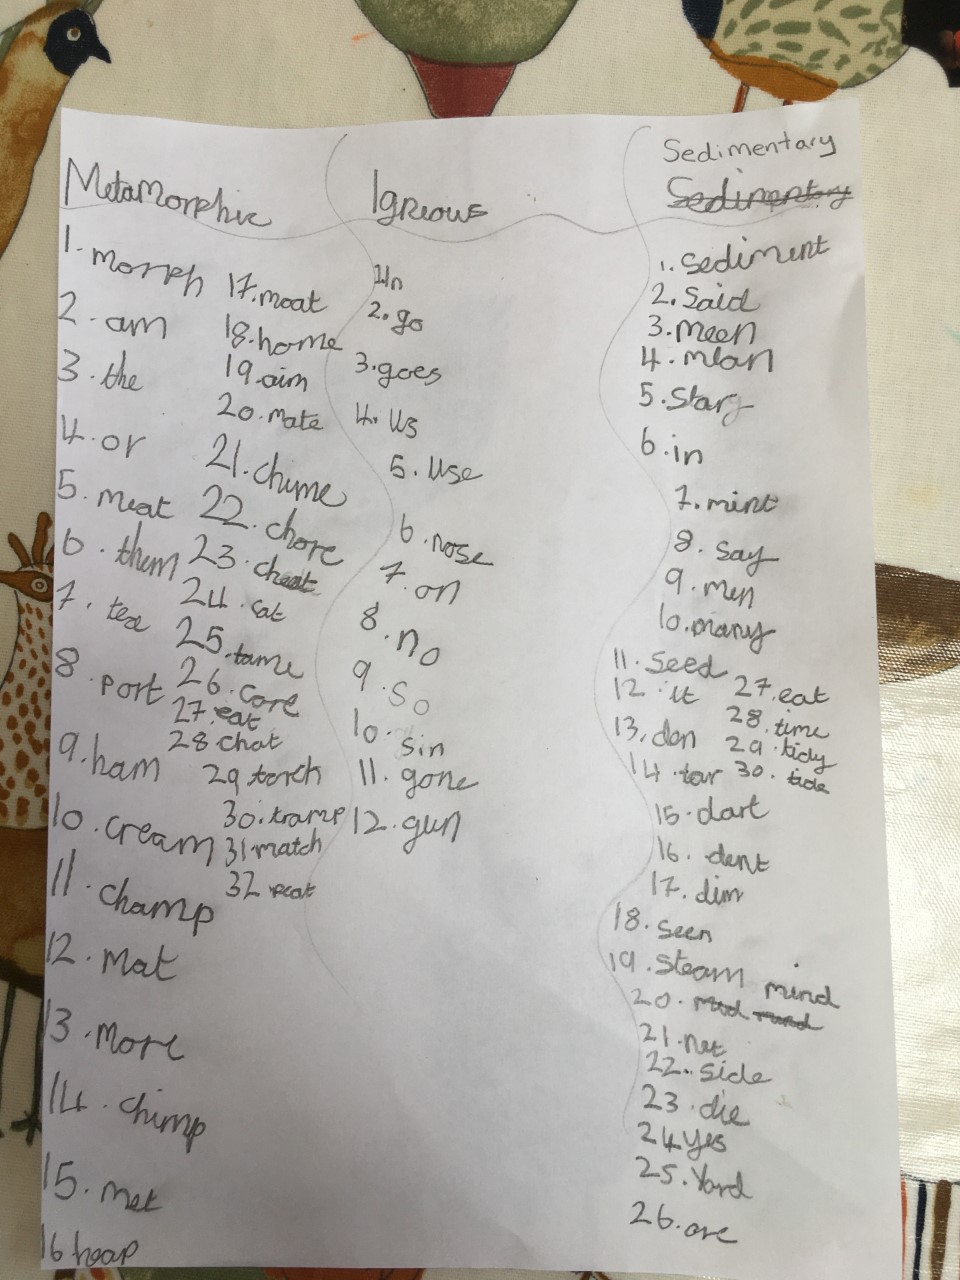 Metamorphic
1. morph
2. am
3. the
4. or
5. meat
6. them
7. tea
8. port
9. ham
10. cream
11. champ
12. mat
13. more
14. chimp
15. met
16 heap
17. moat
18. home
19. aim
20. mate
21. chime
22. chore
23. cheat
24. cat
25. tame
26. core
27. eat
28 chat
29 torch
30. tramp
31 match
32 peat
Igneous
1. In
2. go
3. goes
4. us
5. use
6. nose
7. on
8. no
9. so
10. sin
11. gone
12. gun
Sedimentary
Sedimentry
1. sediment
2. Said
3. meen
4. mean
5. Stary
6. in
7. mint
8. say
9. men
10. many
11. seed
12. it
13. den
14. tar
15. dart
16. dent
17. dim
18. seen
19. steam
20. mind
21. net
22. side
23. die
24 yes
25. Yard
26. are
27. eat
28. time
29. tidy
30. tide